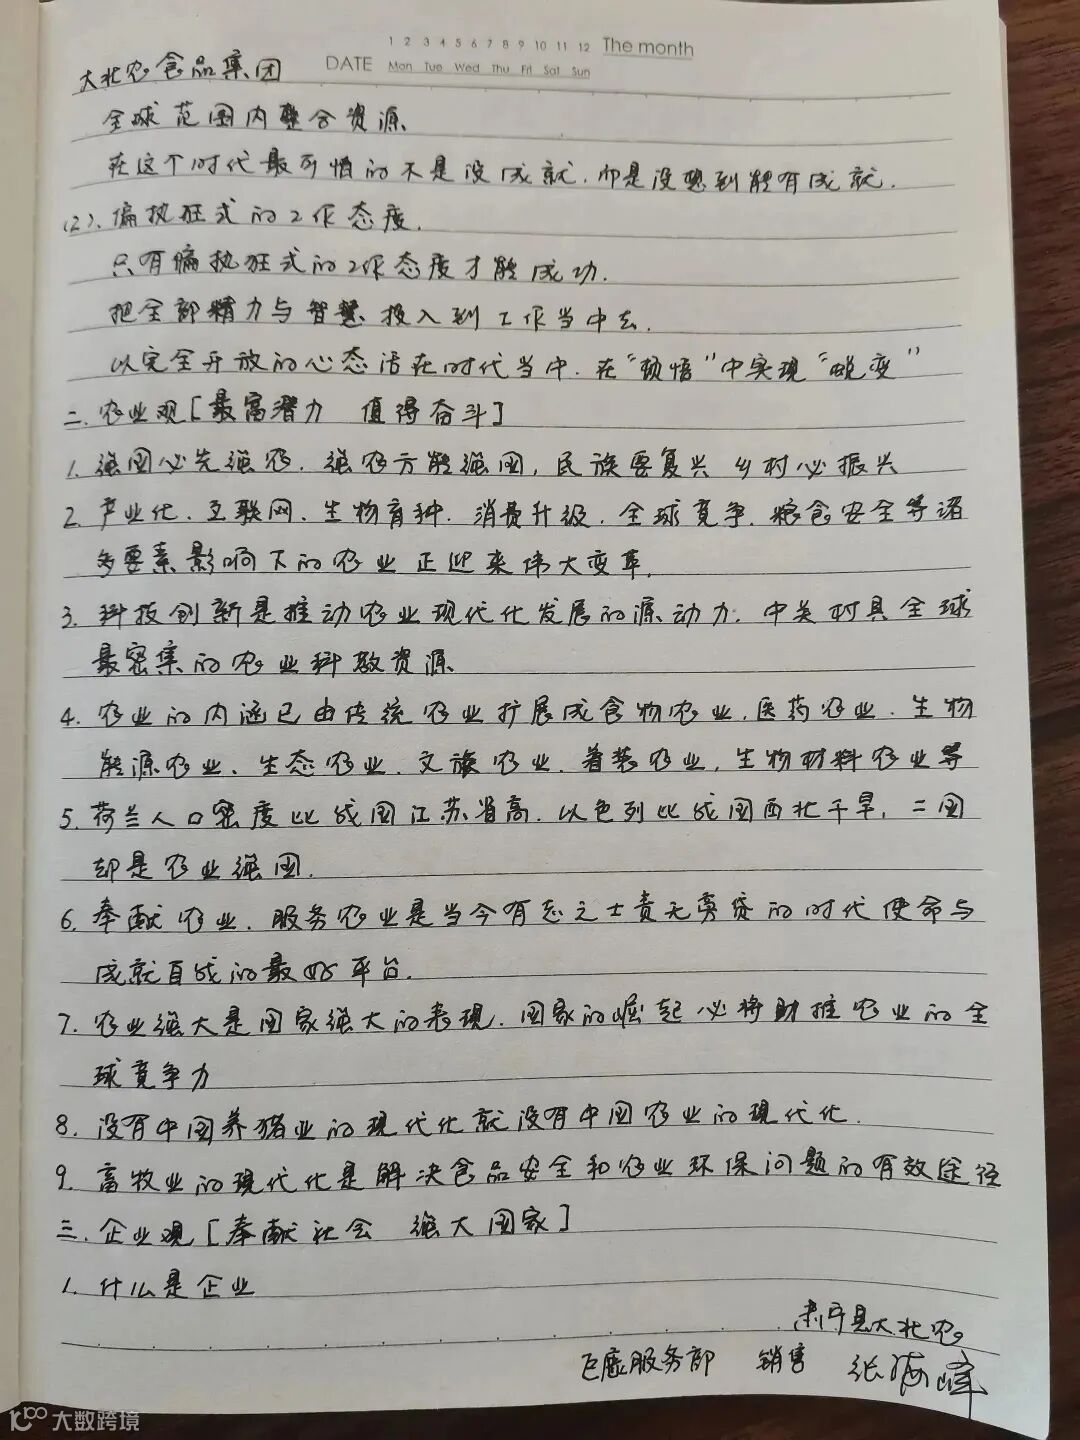 1 2 3 4 5 6 7 8 9 10 11 12 The month
DATE Mon Tue Wed Thu Fri Sat Sun
大北农食品集团
全球范围内整合资源
在这个时代最可惜的不是没成就.而是没想到能有成就.
(2).偏执狂式的工作态度.
只有偏执狂式的工作态度才能成功.
把全部精力与智慧投入到工作当中去.
以完全开放的心态活在时代当中.在“顿悟”中实现“蜕变”
二.农业观[最富潜力 值得奋斗]
1.强国必先强农.强农方能强国,民族要复兴 乡村必振兴
2.产业化.互联网.生物育种.消费升级.全球竞争.粮食安全等诸
多要素影响下的农业正迎来伟大变革.
3.科技创新是推动农业现代化发展的源动力.中关村具全球
最密集的农业科教资源
4.农业的内涵已由传统农业扩展成食物农业.医药农业.生物
能源农业、生态农业.文旅农业.着装农业,生物材料农业等
5.荷兰人口密度比我国江苏省高.以色列比我国西北干旱,二国
却是农业强国.
6.奉献农业.服务农业是当今有志之士责无旁贷的时代使命与
成就自我的最好平台.
7.农业强大是国家强大的表现.国家的崛起必将助推农业的全
球竞争力
8.没有中国养猪业的现代化就没有中国农业的现代化.
9.畜牧业的现代化是解决食品安全和农业环保问题的有效途径
三.企业观[奉献社会 强大国家]
1.什么是企业
肃宁县大北农
服务部 销售 张海峰
大数跨境